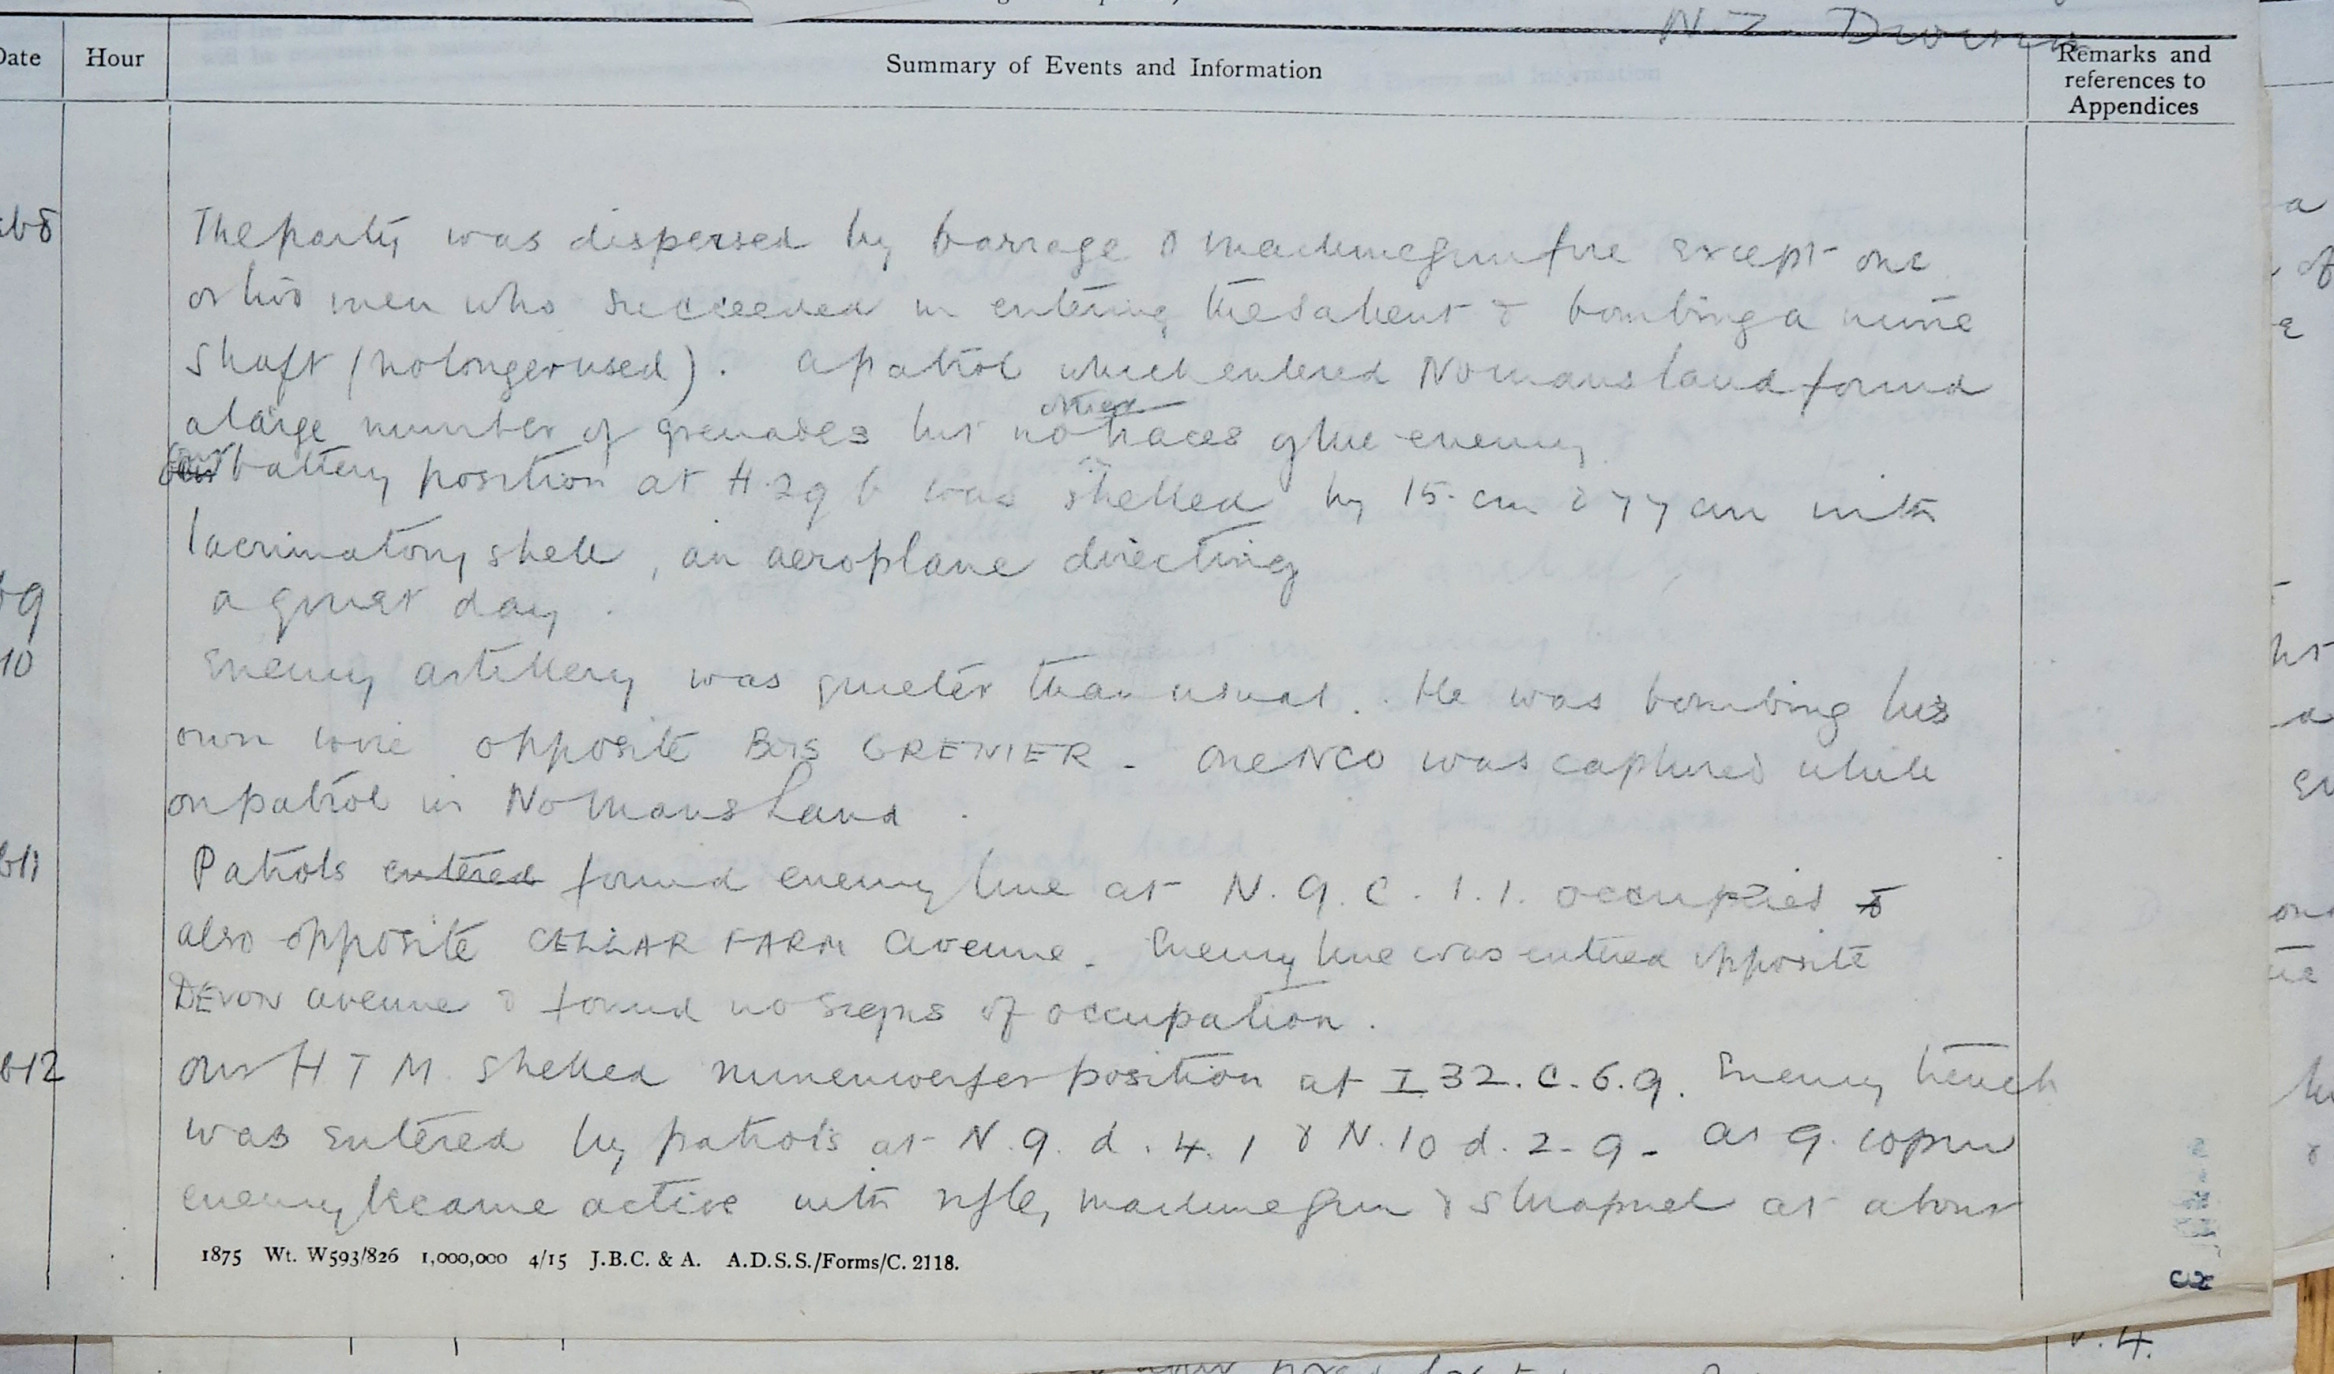 N.Z. Division
Date Hour Summary of Events and Information Remarks and
references to
Appendices
b8 The party was dispersed by barrage & machinegun fire except one
or two men who succeeded in entering the salient & bombing a mine
shaft (no longer used). A patrol which entered No mans land found
a large number of grenades but no other traces of the enemy
Our battery position at H.29 b was shelled by 15 cm & 77 cm with
lacrimatory shell, an aeroplane directing
b9 a quiet day.
10 Enemy artillery was quieter than usual. He was bombing his
own wire opposite BOIS GRENIER - One NCO was captured while
on patrol in No Mans Land.
b11 Patrols entered found enemy line at N.9.c.1.1. occupied &
also opposite CELLAR FARM avenue. Enemy line was entered opposite
DEVON avenue & found no signs of occupation.
b12 Our H T M. shelled minenwerfer position at I 32.c.6.9. Enemy trench
was entered by patrols at N.9.d.4.1 & N.10 d.2-9- At 9.10pm
enemy became active with rifle, machine gun & shrapnel at about
1875 Wt. W593/826 1,000,000 4/15 J.B.C. & A. A.D.S.S./Forms/C. 2118.